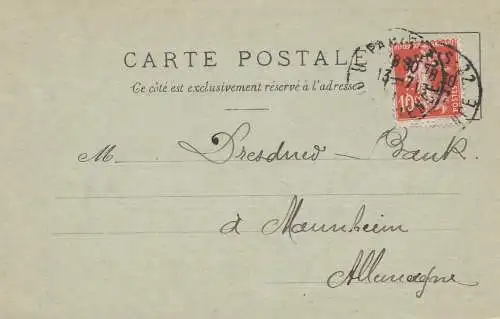 CARTE POSTALE
Ce côté est exclusivement réservé à l'adresse
M. Dresdner Bank.
à Mannheim
Allemagne
10
POSTES
PARIS 22
13-7